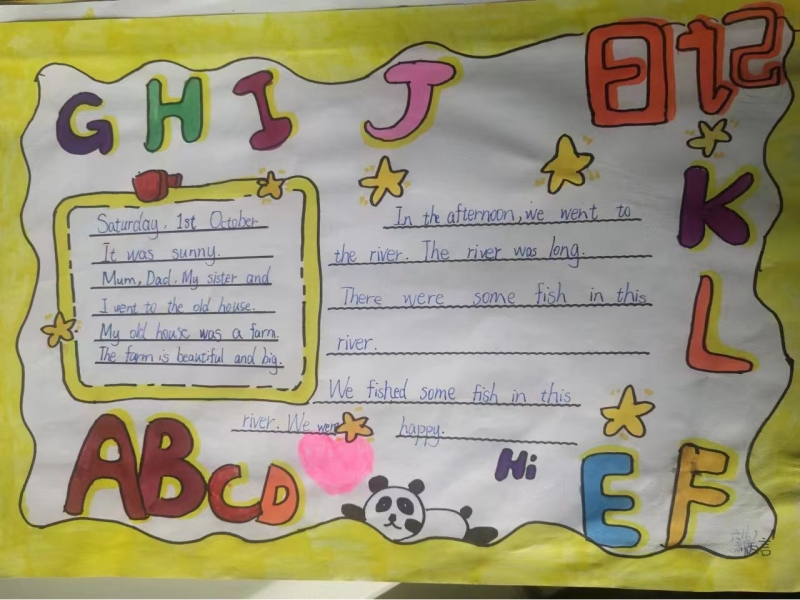 G H I J
日记
K
L
Saturday, 1st October
It was sunny.
Mum, Dad. My sister and
I went to the old house.
My old house was a farm.
The farm is beautiful and big.
In the afternoon, we went to
the river. The river was long.
There were some fish in this
river.
We fished some fish in this
river. We were happy.
ABCD
Hi
E F